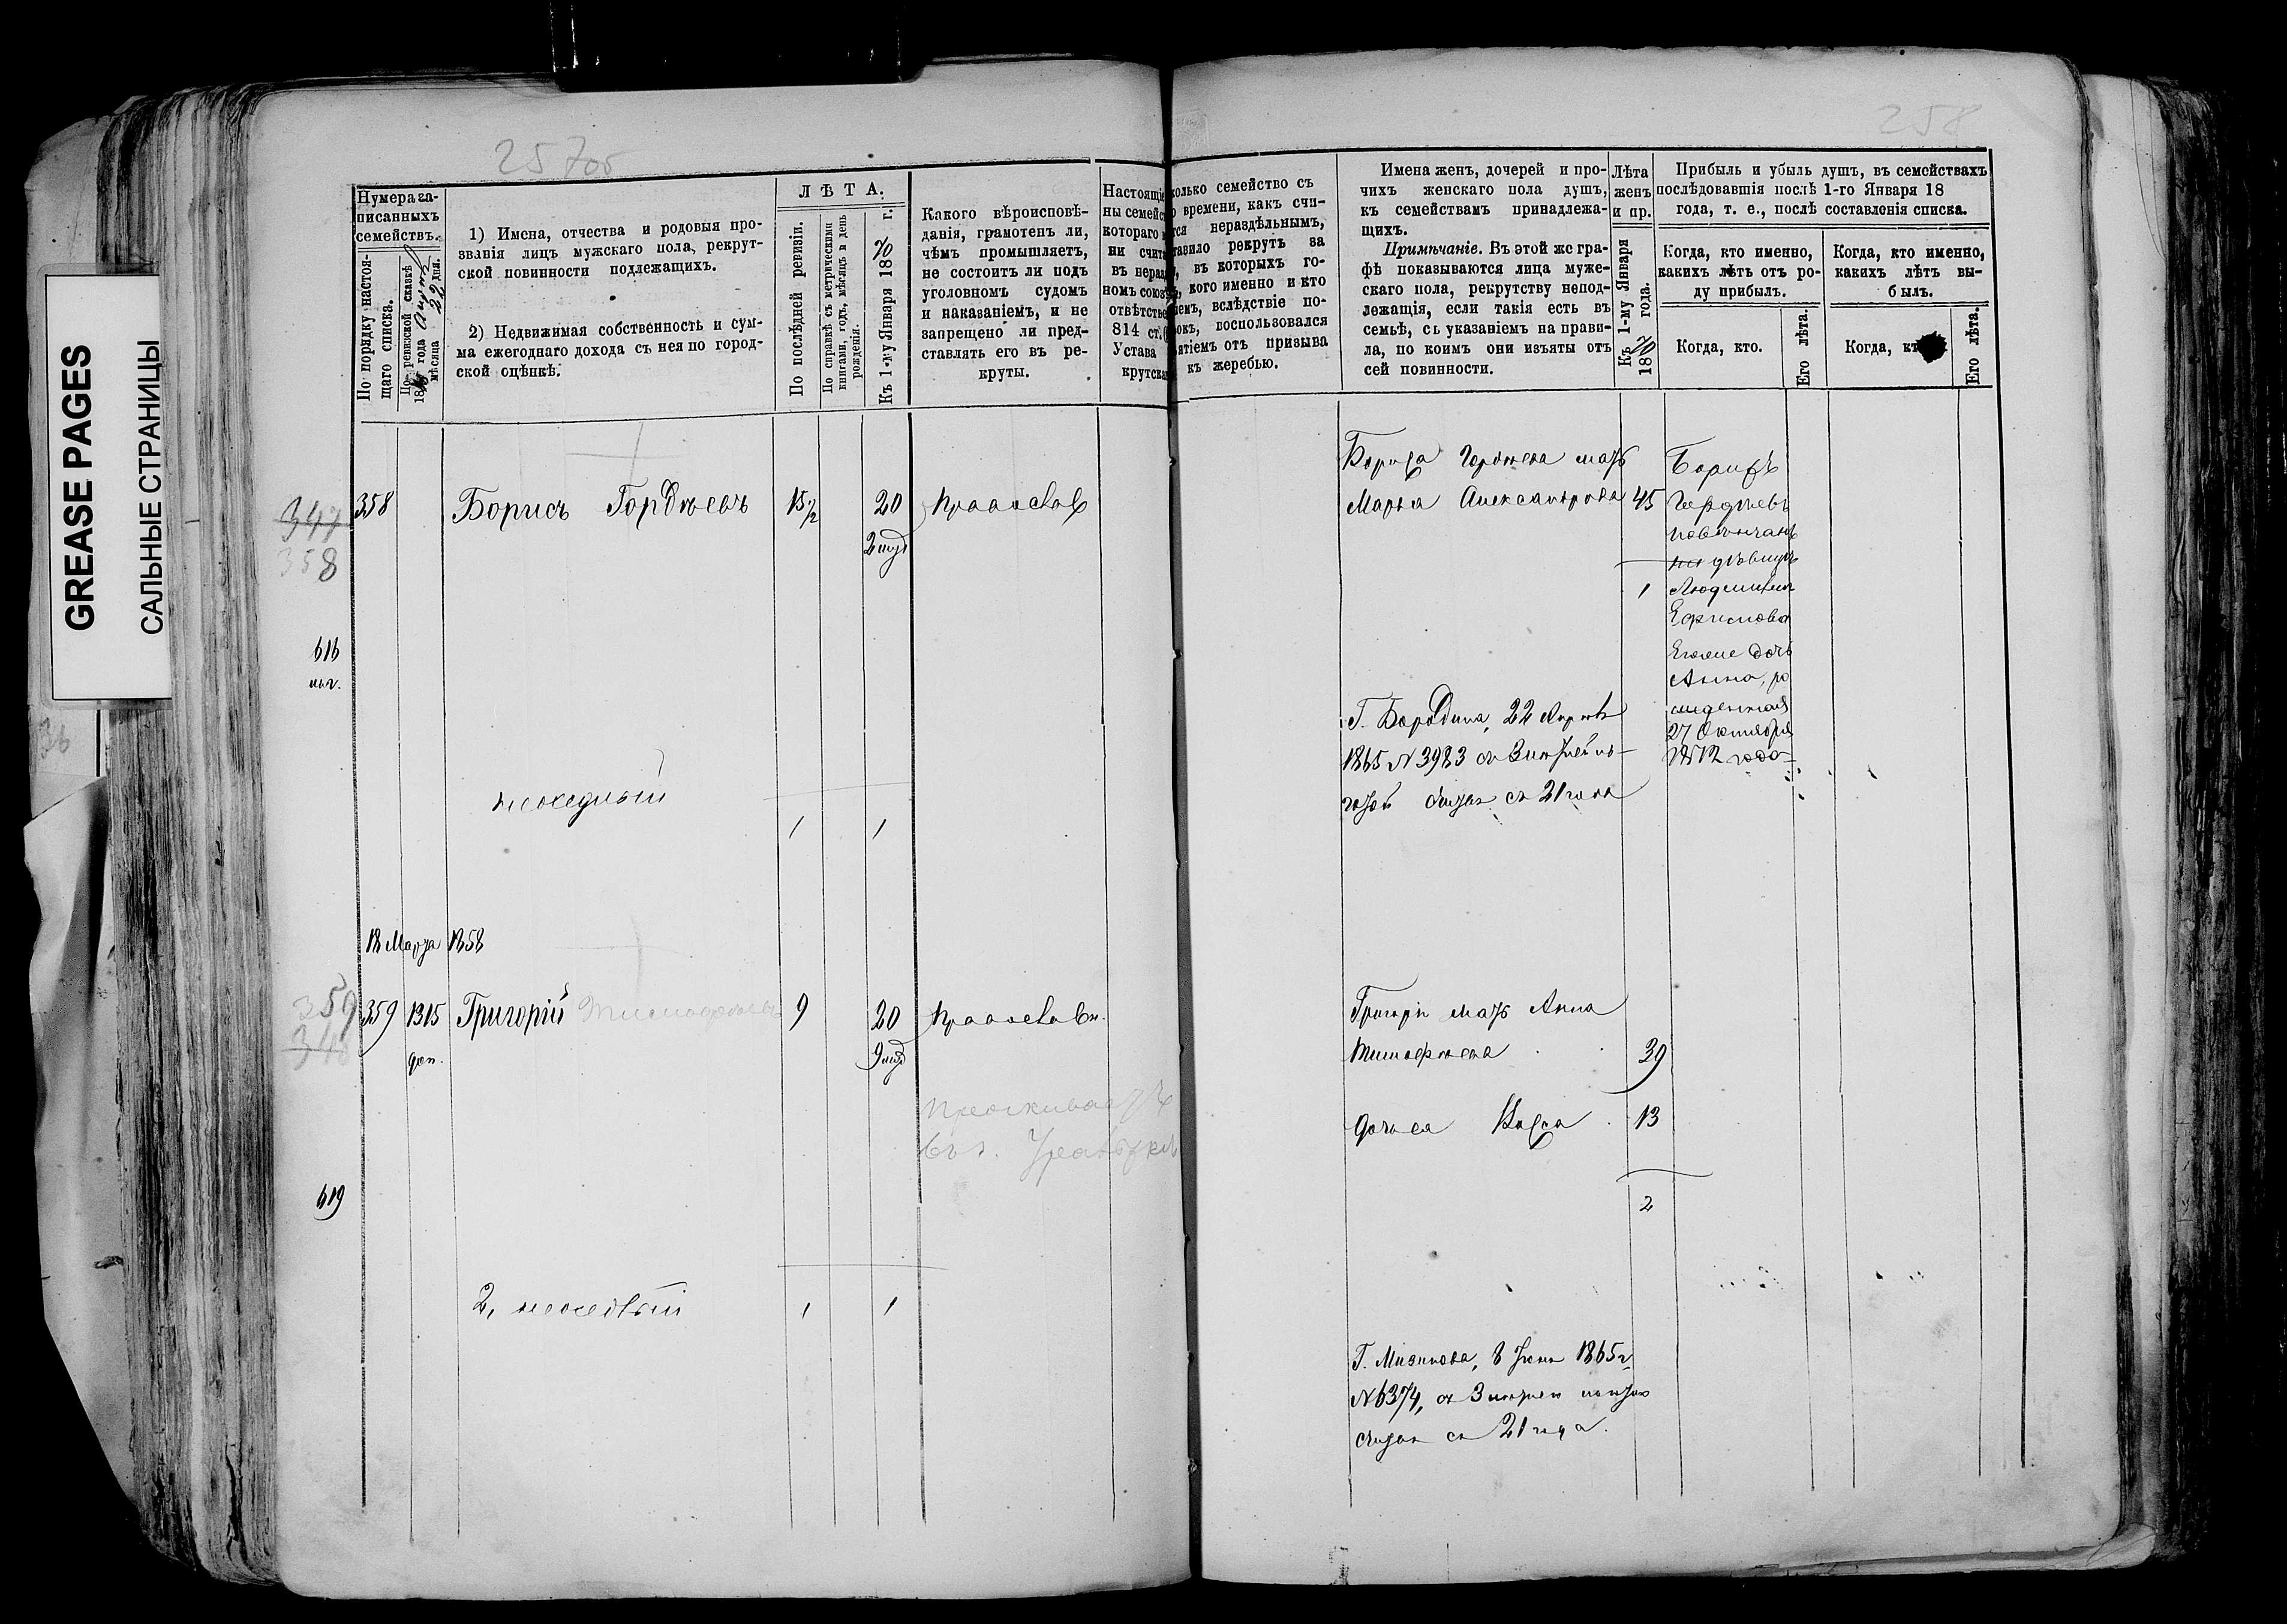 GREASE PAGES
САЛЬНЫЕ СТРАНИЦЫ
257об
258
Нумера за-
писанныхъ
семействъ.
По порядку настоя-
щаго списка.
По ревизской сказкѣ
18 года
мѣсяца 22 дня.
1) Имена, отчества и родовыя про-
званія лицъ мужскаго пола, рекрут-
ской повинности подлежащихъ.
2) Недвижимая собственность и сум-
ма ежегоднаго дохода съ нея по город-
ской оцѣнкѣ.
ЛѢТА.
По послѣдней ревизіи.
По справкѣ съ метрическими
книгами, годъ, мѣсяцъ и день
рожденія.
Къ 1-му Января 1870 г.
Какого вѣроисповѣ-
данія, грамотенъ ли,
чѣмъ промышляетъ,
не состоитъ ли подъ
уголовномъ судомъ
и наказаніемъ, и не
запрещено ли пред-
ставлять его въ ре-
круты.
Настоящіе
ны семейс
котораго
ни счита
въ нераз
номъ союз
отвѣтстве
814 ст.
Устава
крутска
колько семейство съ
о времени, какъ счи-
тся нераздѣльнымъ,
тавило рекрутъ за
, въ которыхъ го-
, кого именно и кто
емъ, вслѣдствіе по-
окъ, воспользовался
ятіемъ отъ призыва
къ жеребью.
Имена женъ, дочерей и про-
чихъ женскаго пола душъ,
къ семействамъ принадлежа-
щихъ.
Примѣчаніе. Въ этой же гра-
фѣ показываются лица муже-
скаго пола, рекрутству непод-
лежащія, если такія есть въ
семьѣ, съ указаніемъ на прави-
ла, по коимъ они изъяты отъ
сей повинности.
Лѣта
женъ
и пр.
Къ 1-му Января
1870 года.
Прибыль и убыль душъ, въ семействахъ
послѣдовавшія послѣ 1-го Января 18
года, т. е., послѣ составленія списка.
Когда, кто именно,
какихъ лѣтъ отъ ро-
ду прибылъ.
Когда, кто.
Его лѣта.
Когда, кто именно,
какихъ лѣтъ вы-
былъ.
Когда, кт
Его лѣта.
347
358
358
Борисъ Гордѣевъ
15 1/2
20
Православ
Бориса Гордѣева мать
Марья Александрова 45
1
Борисъ
Гордѣевъ
повѣнчанъ
на дѣвицѣ
Ефимова
Анна, ро
жденная
27 Октября
1872 года
616
Г. Бородина, 22 Апрѣля
1865 N 3983
съ 21 года
1 1
18 Марта 1858
359
359 1315 Григорій 9 20 Православн.
доп.
проживаетъ
въ г.
Григорія мать Анна
Тимофѣева 39
дочь ея 13
2
619
1 1
Г. Мизинова, 8 1865 г.
N 6374,
съ 21 года.